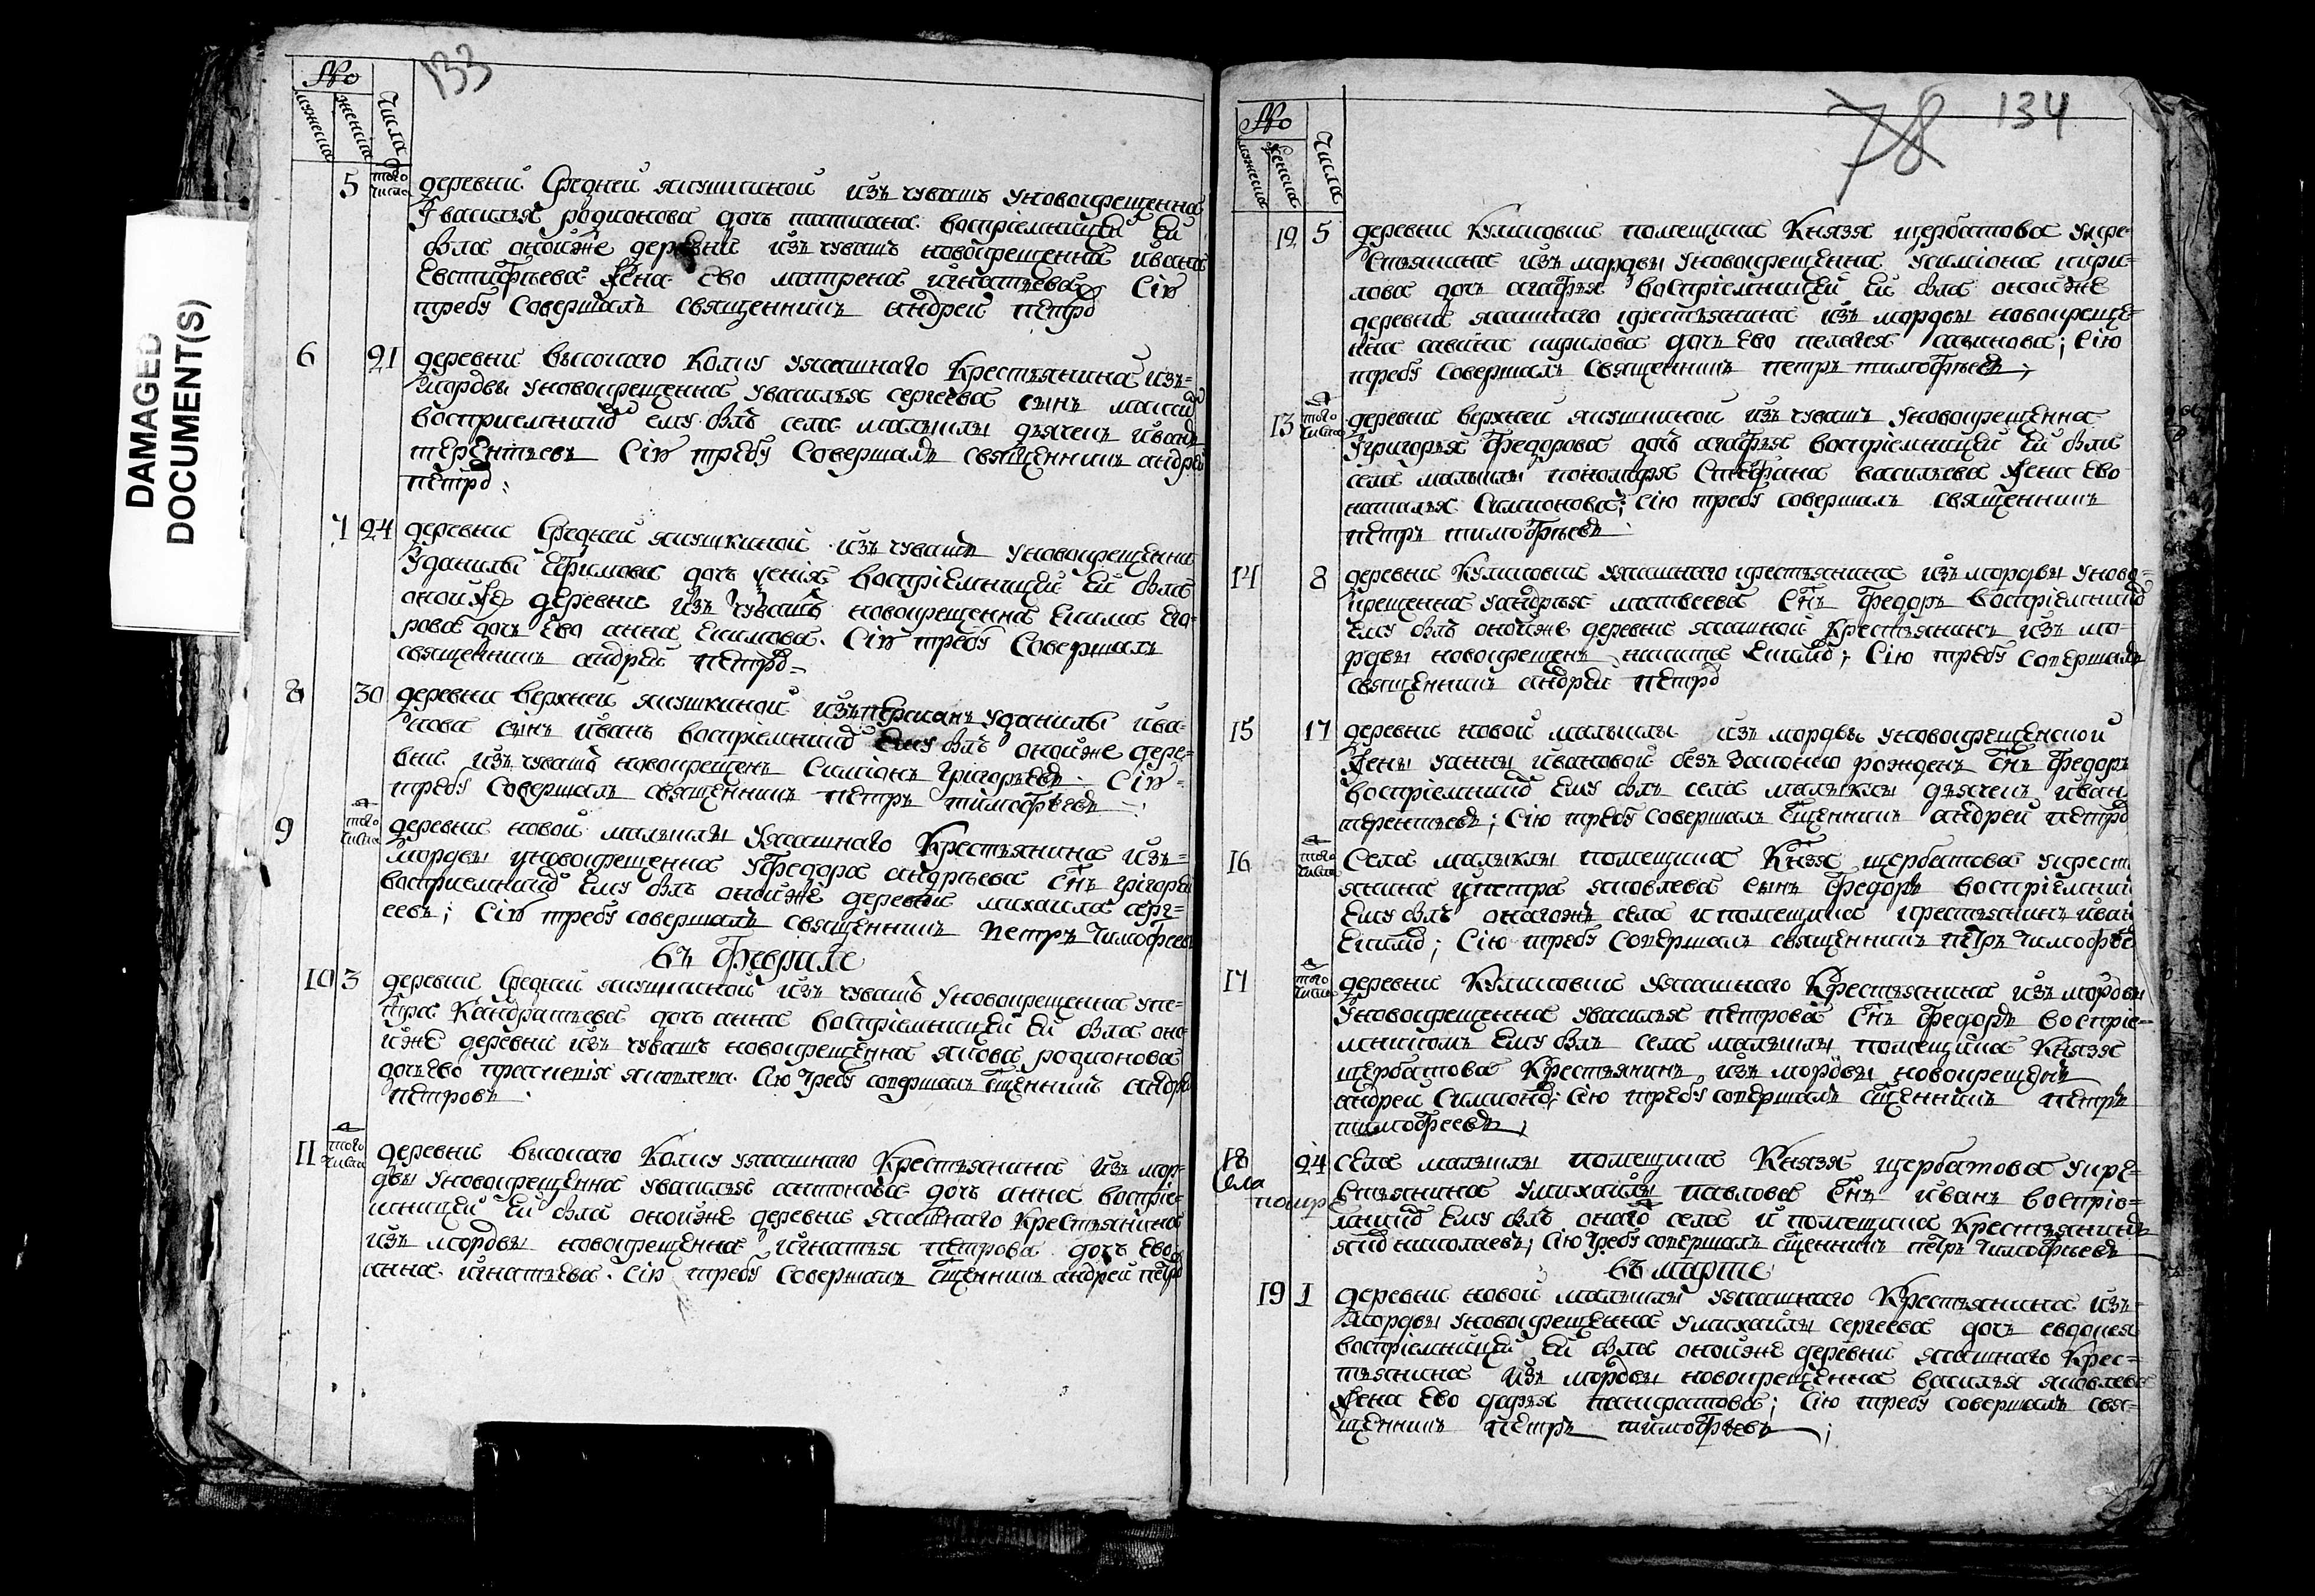 DAMAGED
DOCUMENT(S)
133
№
мужеска
женска
Числа
5 того числа деревни Средней якушкиной изъ чувашъ уновокрещенна
Увасилья родионова дочь татиана воспрiемницей ей
была онойже деревни изъ чувашъ новокрещенна ивана
Евстифѣева жена ево матрена игнатьева Сiю
требу Совершалъ священникъ андрей петро
6 21 деревни высокаго Колку уясашнаго Крестьянина изъ=
мордвы уновокрещенна увасилья сергеева сынъ
воспрiемнико ему былъ села малыклы дьячекъ иванъ
терентьевъ Сiю требу Совершалъ священникъ андрей
петро
7 24 деревни Средней якушкиной изъ чувашъ уновокрещенна
Уданилы Ефимова дочь ксенiя воспрiемницей ей была
онойже деревни изъ чувашъ новокрещенна Екима его-
рова дочь ево анна Екимова. Сiю требу Совершалъ
священникъ андрей петро
8 30 деревни верхней якушкиной изъ уданилы ива-
нова сынъ иванъ воспрiемнико Ему былъ онойже дере-
вни изъ чувашъ новокрещенъ Симионъ григорьевъ Сiю
требу Совершалъ священникъ петръ тимофѣевъ
9 того числа деревни новой малыклы уясашнаго Крестьянина изъ=
мордвы уновокрещенна уфедора андрѣева снъ григорей
воспрiемнико Ему былъ онойже деревни михаила серг=
еевъ; Сiю требу совершалъ священникъ Петръ Тимофеевъ
въ Февралѣ
10 3 деревни Средней якушкиной изъ чувашъ уновокрещенна упе-
тра Кандратьева дочь анна воспрiемницей ей была оно
йже деревни изъ чувашъ новокрещенна якова родионова
дочь ево яковлева. Сiю требу совершалъ сщенникъ андрей
петровъ
11 того числа деревни высокаго Колку уясашнаго Крестьянина изъ мор-
двы уновокрещенна увасилья антонова дочь анна воспрiе-
мницей ей была онойже деревни ясашнаго Крестьянина
изъ мордвы новокрещенна игнатья петрова дочь ево
анна игнатьева. Сiю требу Совершалъ сщенникъ андрей петро
78 134
№
мужеска
женска
Числа
12 5 деревни Куликовки помещика Князя щербатова укре-
стьянина изъ мордвы уновокрещенна усимiона кири-
лова дочь агафья воспрiемницей ей была онойже
деревни ясашнаго крестьянина изъ мордвы новокреще-
нна савина кирилова дочь ево пелагея; Сiю
требу совершалъ Священникъ петръ тимофѣевъ;
13 того числа деревни верхней якушкиной изъ чувашъ уновокрещенна
Угригорья Федорова дочь агафья воспрiемницей ей была
села малыклы пономаря Стефана васильева жена Ево
наталья Симионова; Сiю требу совершалъ священникъ
петръ тимофѣевъ
14 8 деревни Куликовки уясашнаго крестьянина изъ мордвы уново-
крещенна уандрѣя матвеева Снъ Федоръ воспрiемнико
ему былъ онойже деревни ясашной Крестьянинъ изъ мо-
рдвы новокрещенъ никита Екимо; Сiю требу совершалъ
священникъ андрей петро
15 17 деревни новой малыклы изъ мордвы уновокрещенской
Жены уанны ивановой безъ законно рожденъ снъ Федоръ
воспрiемнико Ему былъ села малыклы дьячекъ иван
терентьевъ; Сiю требу совершалъ сщенникъ андрей петро
16 того числа Села малыклы помещика Кнзя щербатова укрест
янина упетра яковлева сынъ Федоръ воспрiемнико
Ему былъ онагожъ села и помещика крестьянинъ иван
Екимо; Сiю требу совершалъ священникъ петръ тимофѣе
17 того числа деревни Куликовки уясашнаго Крестьянина изъ мордвы
Уновокрещенна увасилья петрова Снъ Федоръ воспрiе-
мникомъ Ему былъ села малыклы помещика Князя
щербатова Крестьянинъ изъ мордвы новокрещенъ
андрей Симионо; Сiю требу совершалъ сщенникъ петръ
тимофеевъ;
18 24 Села малыклы помещика Князя щербатова укре-
Села
стьянина умихайлы павлова Снъ иванъ воспрiе-
мнико Ему былъ онаго села и помещика Крестьянинъ
николаевъ; Сiю требу совершалъ сщенникъ петръ тимофѣевъ
въ марте
19 1 деревни новой малыклы уясашнаго Крестьянина изъ-
мордвы уновокрещенна умихайлы сергеева дочь евдокея
воспрiемницей ей была онойже деревни ясашнаго Крес=
тьянина изъ мордвы новокрещенна василья яковлева
жена Ево дарья панкратова; Сiю требу совершалъ свя-
щенникъ петръ тимофѣевъ;